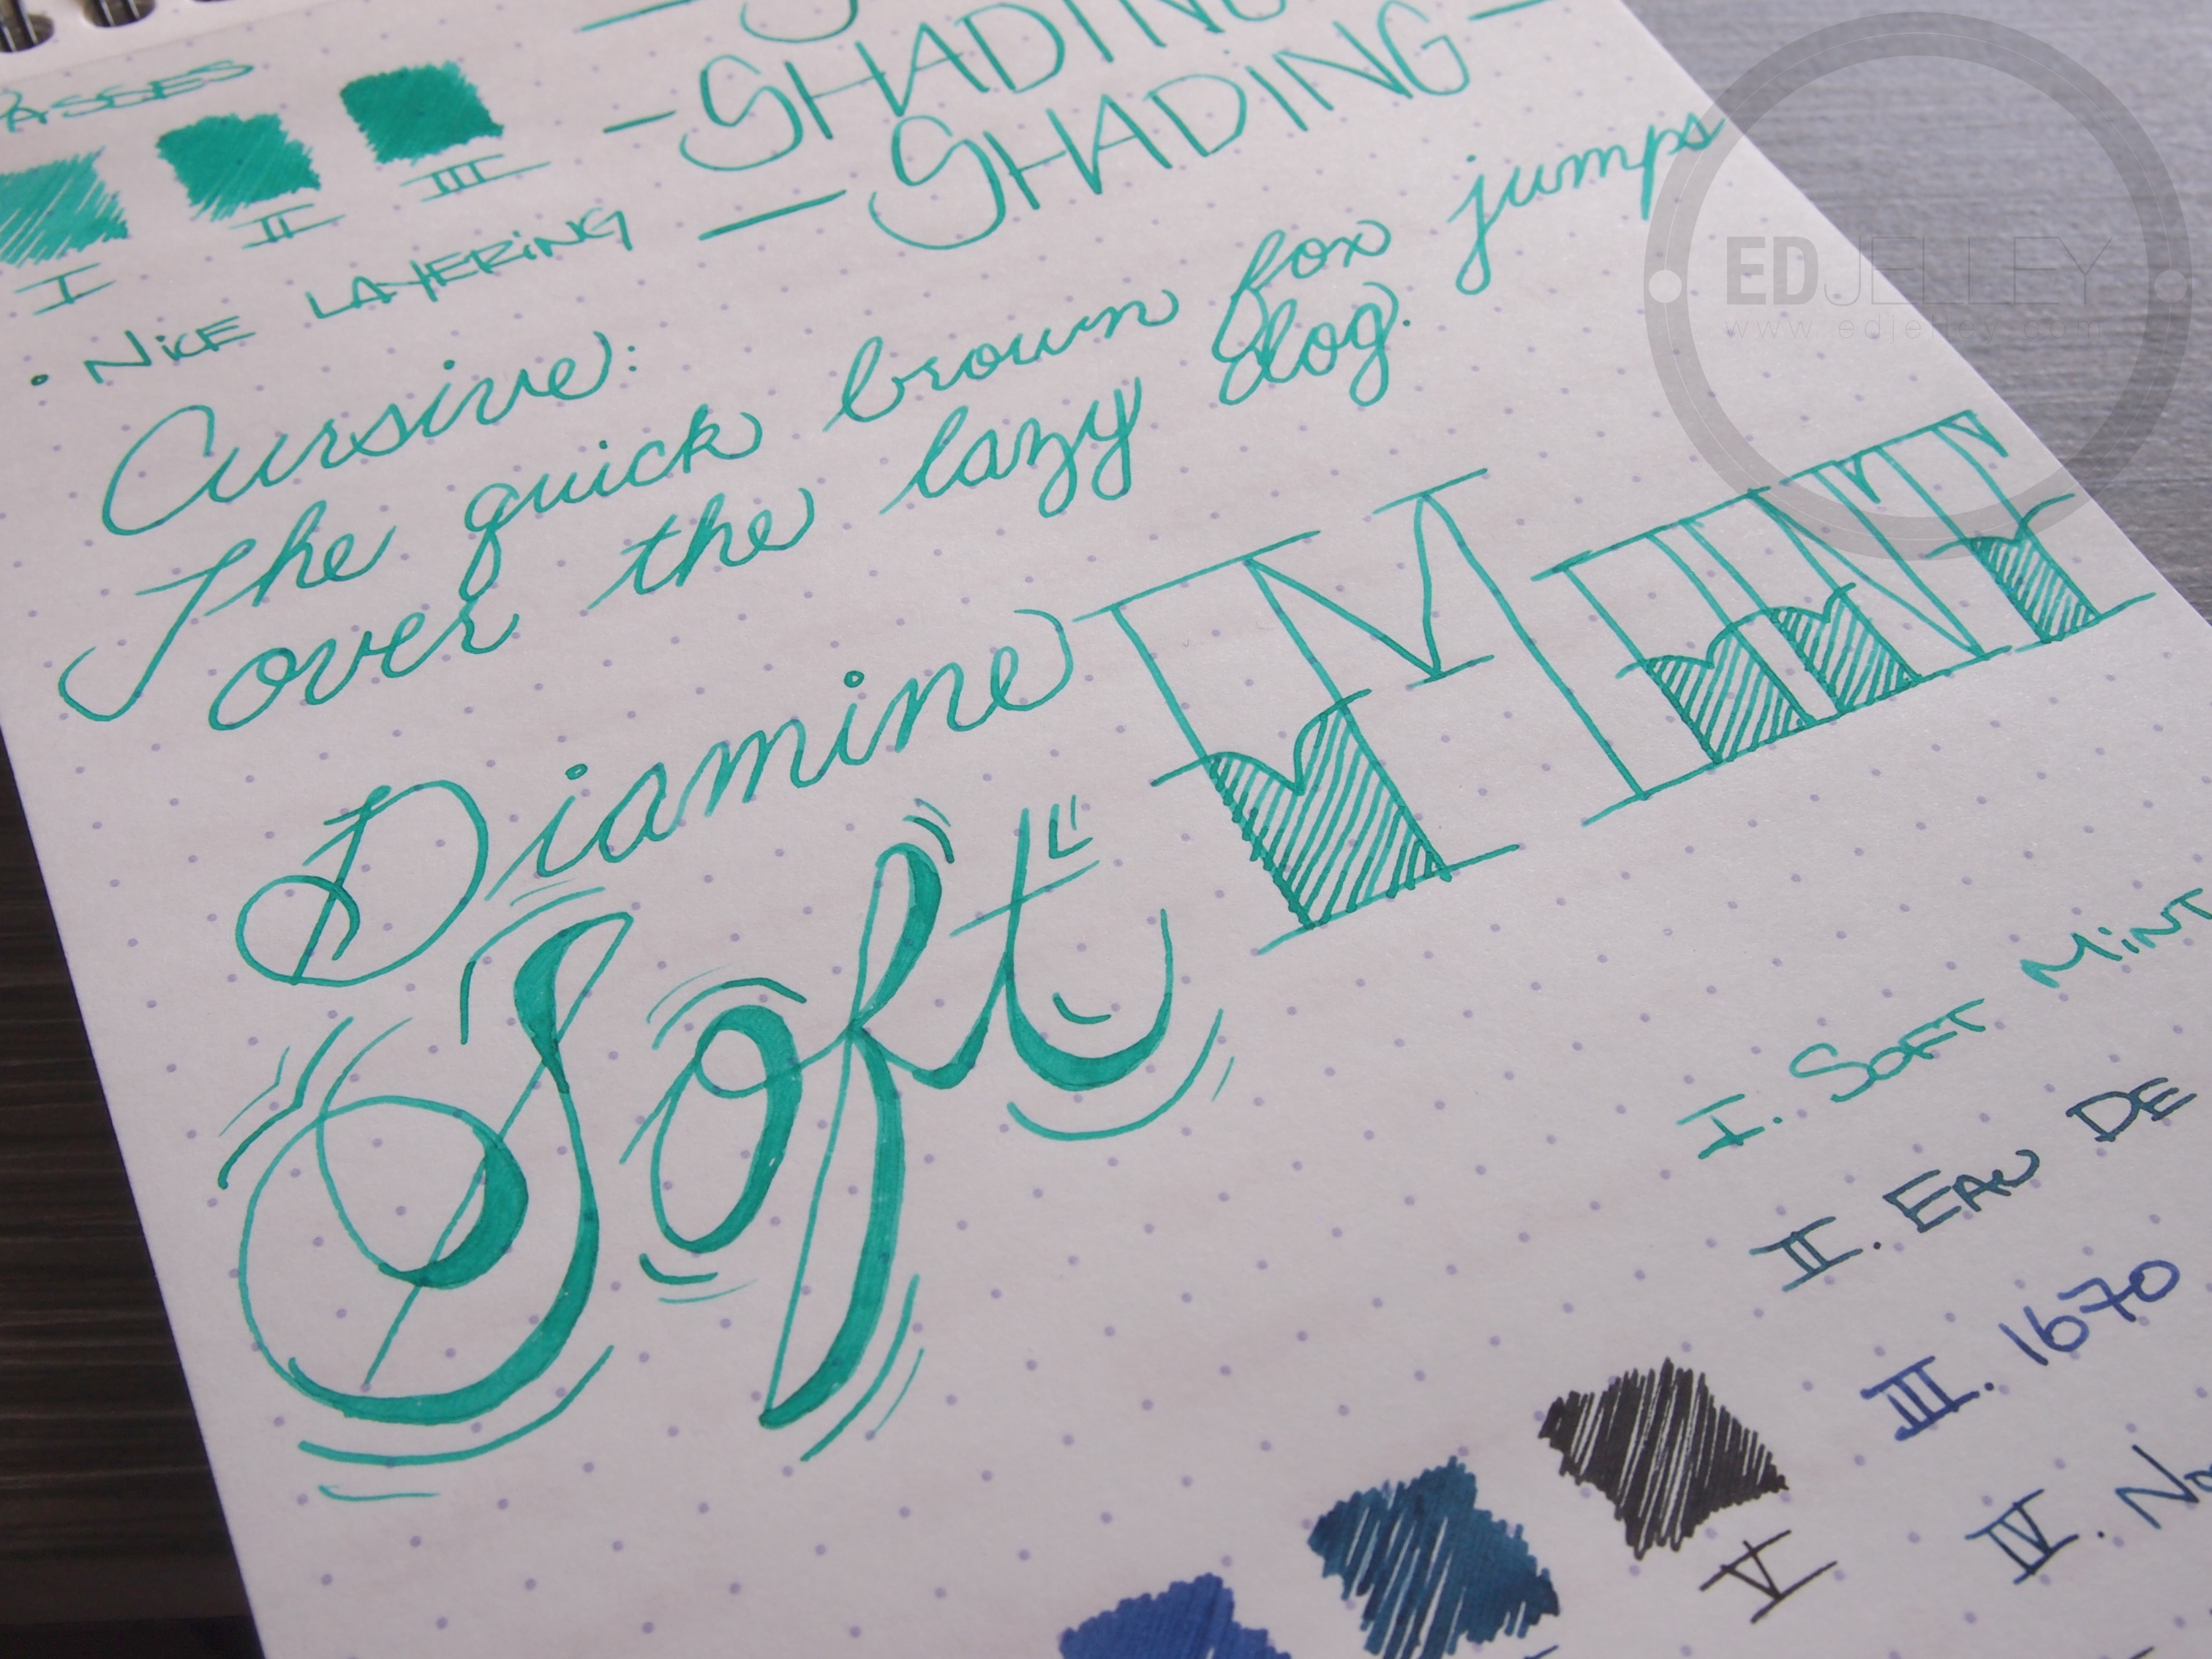 PASSES
I
II
III
• NiCE LAYERiNG
SHADING
— SHADING
— SHADING —
Cursive:
The quick brown fox jumps
over the lazy dog.
Diamine
Soft MINT
I. SOFT MiNT
II. EAU DE
III. 1670
IV. No
V
EDJELLEY
www.edjelley.com